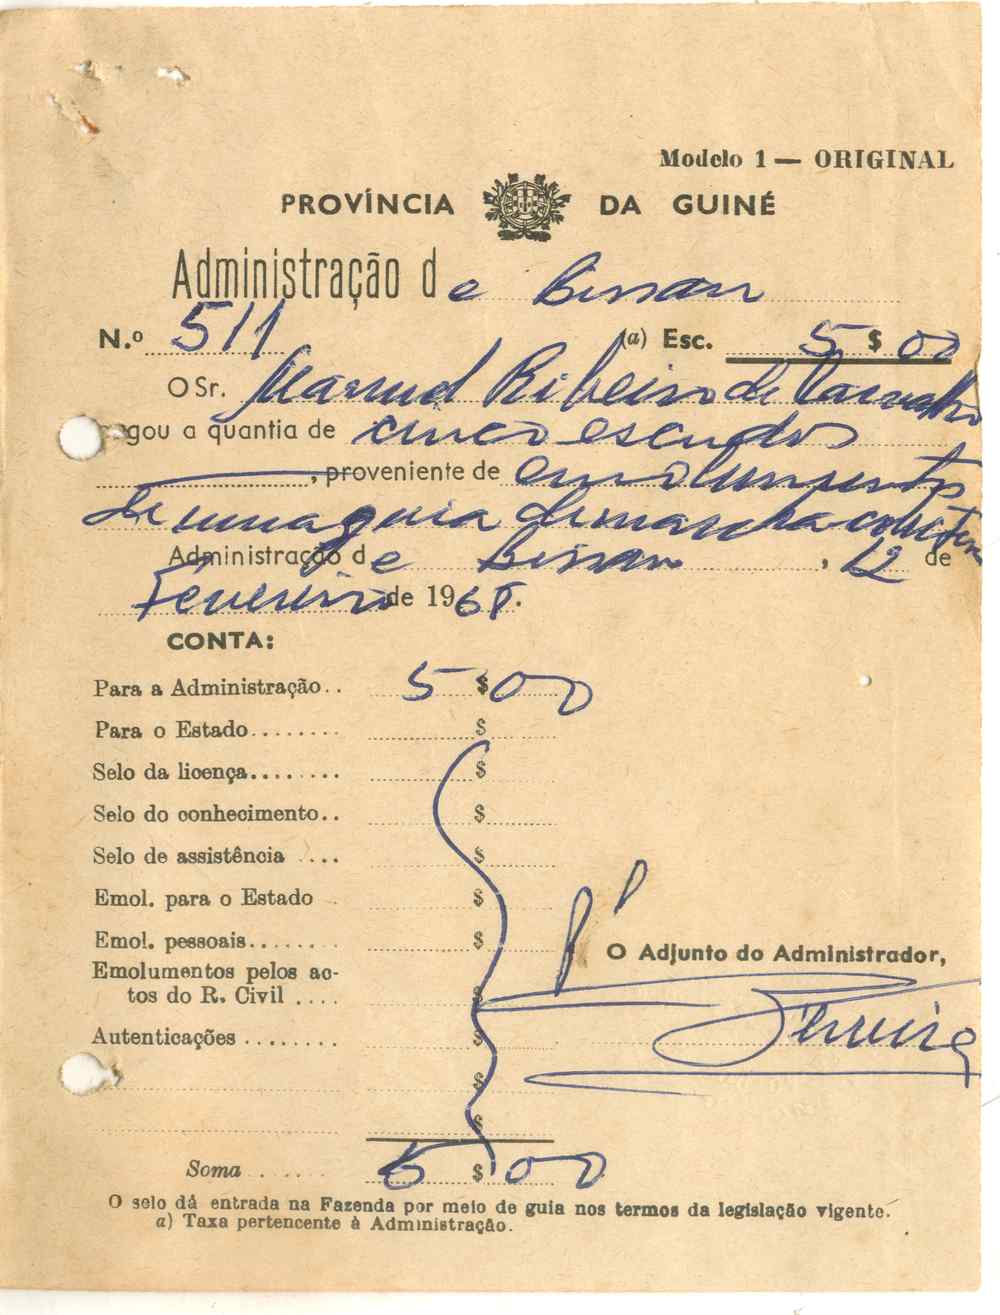 Modelo 1 — ORIGINAL
PROVÍNCIA DA GUINÉ
Administração de Bissau
N.º 511 (a) Esc. 5$00
O Sr. Manuel Ribeiro de Carvalho
pagou a quantia de cinco escudos
, proveniente de emolumentos
de uma guia de marcha
Administração de Bissau, 12 de
Fevereiro de 1968.
CONTA:
Para a Administração.. 5$00
Para o Estado........ $
Selo da licença........ $
Selo do conhecimento.. $
Selo de assistência .... $
Emol. para o Estado $
Emol. pessoais........ $
O Adjunto do Administrador,
Emolumentos pelos ac-
tos do R. Civil .... $
Ferreira
Autenticações ........ $
$
$
Soma ...... 5$00
O selo dá entrada na Fazenda por meio de guia nos termos da legislação vigente.
a) Taxa pertencente à Administração.